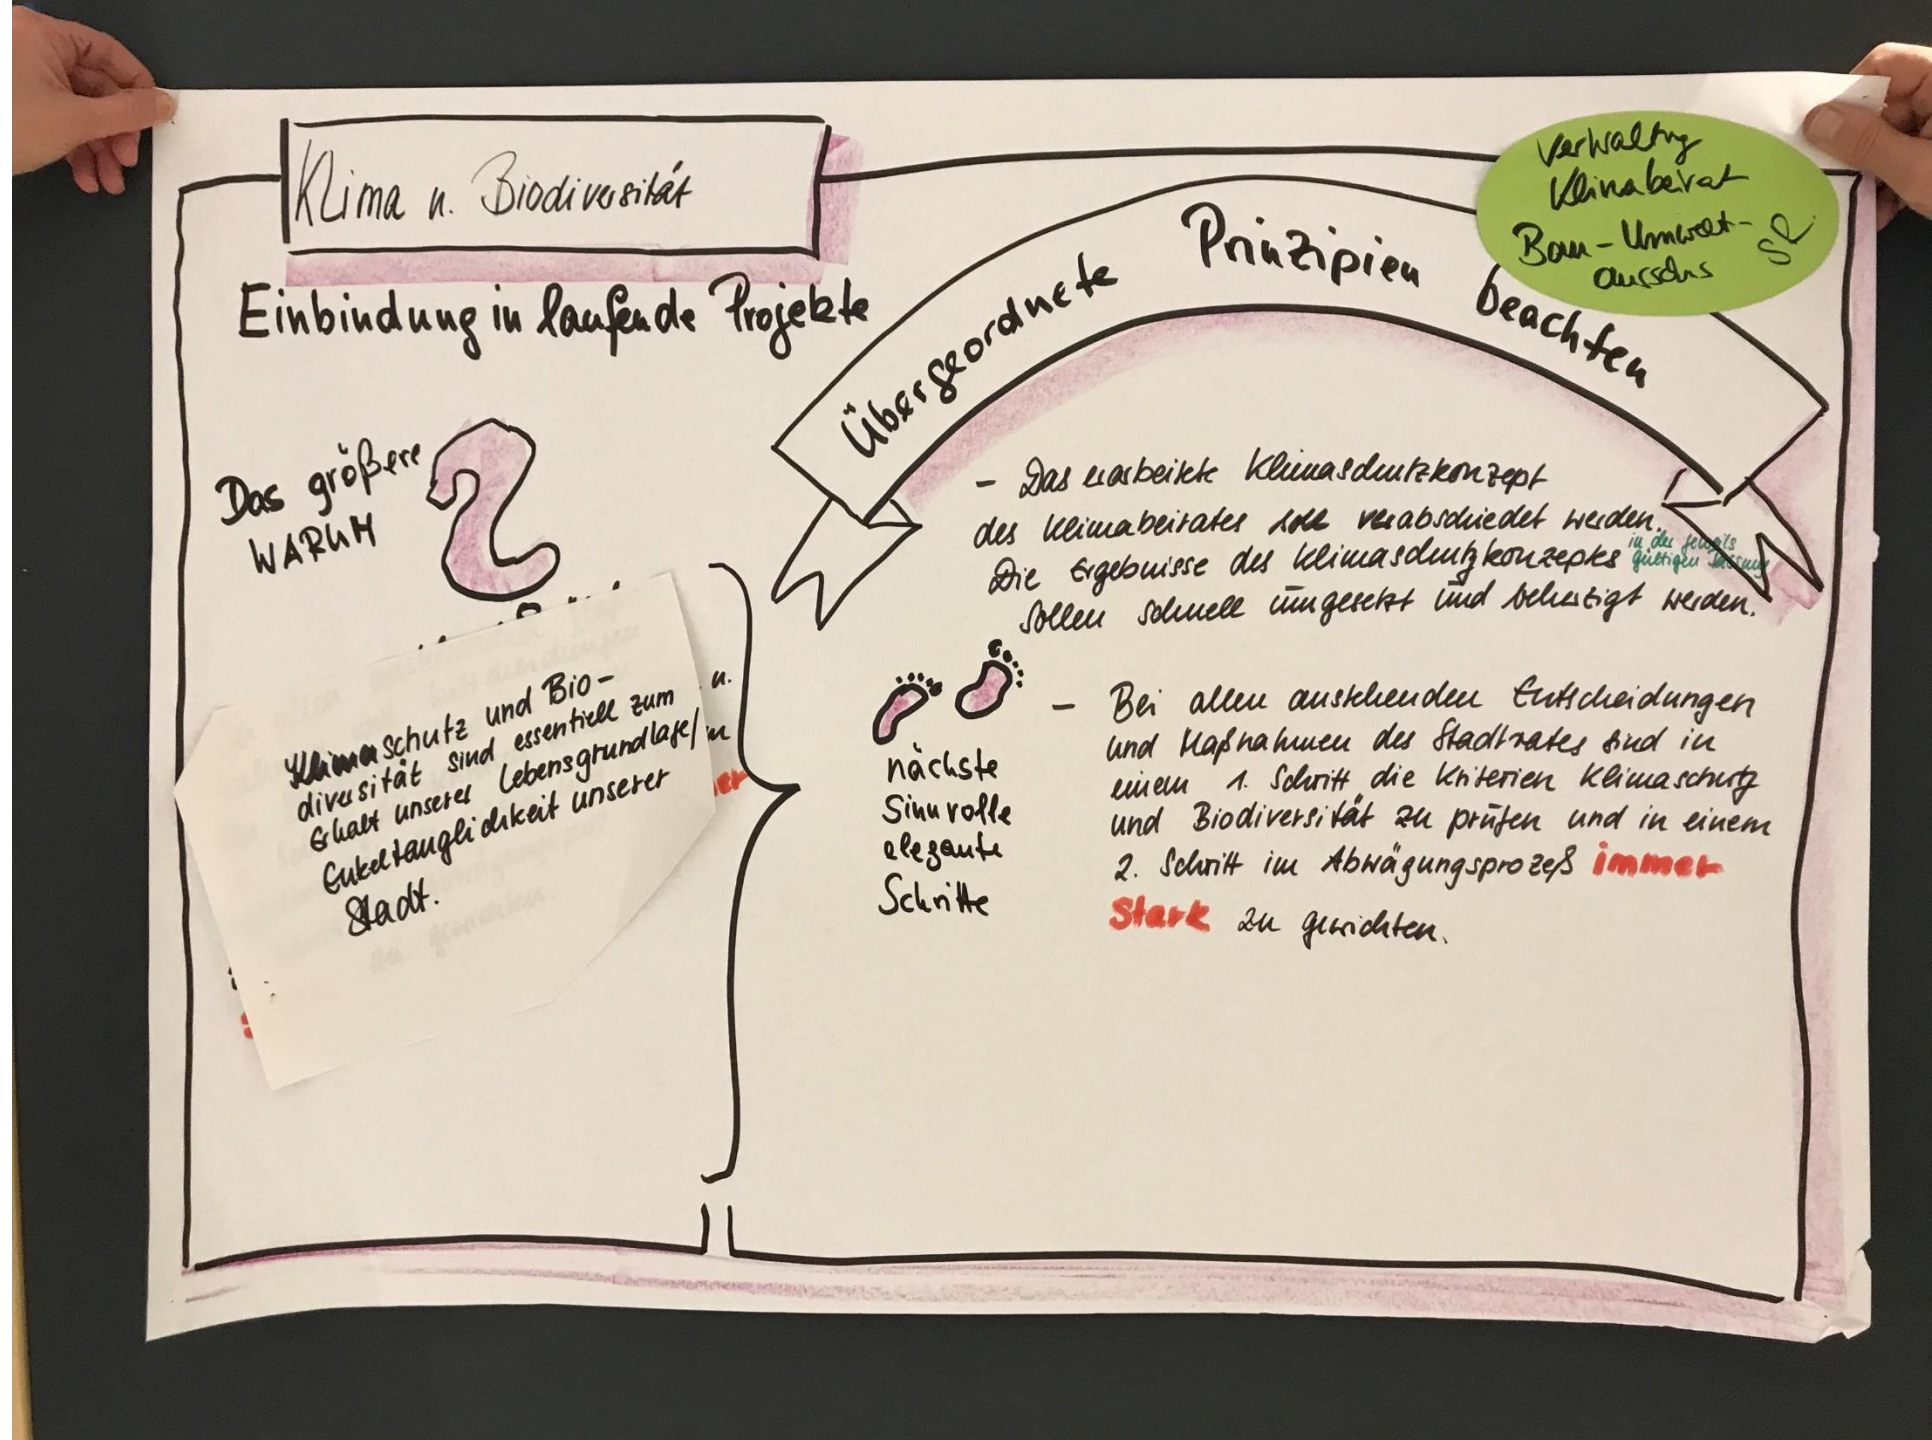 Klima u. Biodiversität
Einbindung in laufende Projekte
Verwaltng
Klimabeirat
Bau-Umwelt-
ausschs
SR
Übergeordnete Prinzipien beachten
Das größere
WARUM
Klimaschutz und Bio-
diversität sind essentiell zum
Erhalt unserer Lebensgrundlage/
Enkeltauglichkeit unserer
Stadt.
u.
er
- Das erarbeitete Klimaschutzkonzept
des Klimabeirates soll verabschiedet werden.
Die Ergebnisse des Klimaschutzkonzeptes
in der jeweils
gültigen Fassung
sollen schnell umgesetzt und beherzigt werden.
nächste
Sinnvolle
elegante
Schritte
- Bei allen anstehenden Entscheidungen
und Maßnahmen des Stadtrates sind in
einem 1. Schritt die Kriterien Klimaschutz
und Biodiversität zu prüfen und in einem
2. Schritt im Abwägungsprozeß immer
Stark zu gewichten.